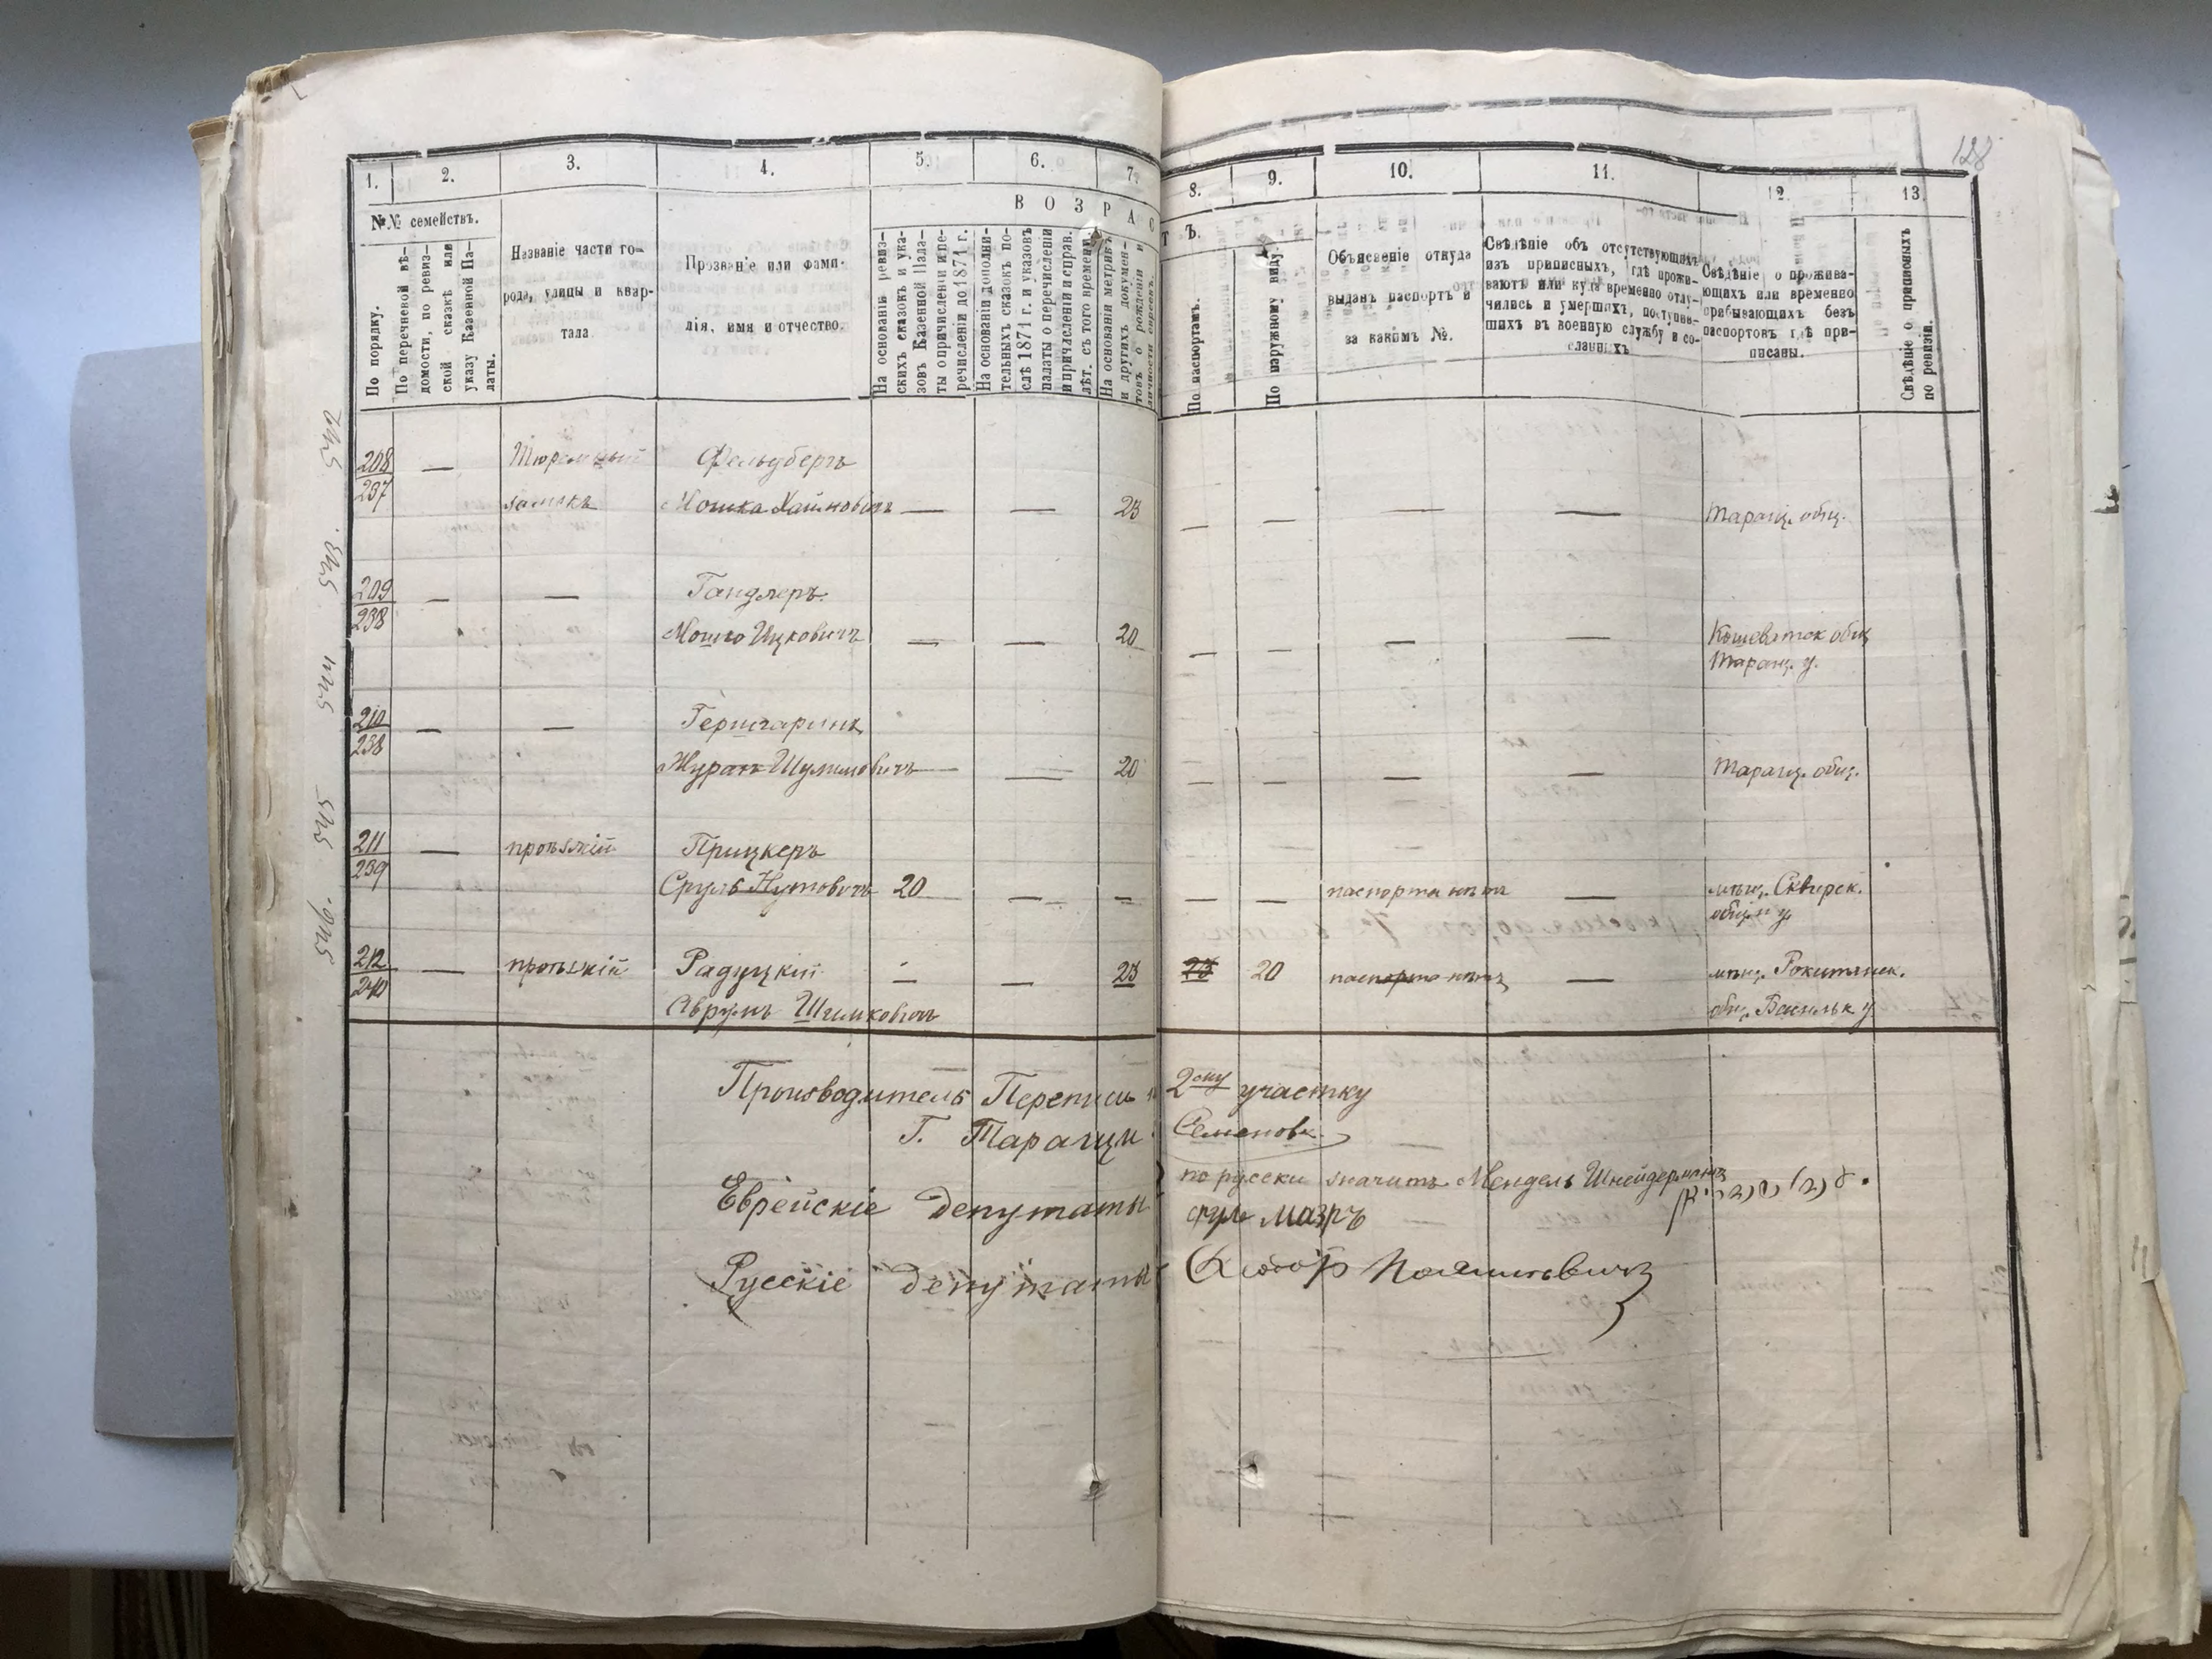 128
1. 2. 3. 4. 5. 6. 7. 8. 9. 10. 11. 12. 13.
№№ семействъ.
По порядку.
По перечневой вѣ-
домости, по ревиз-
ской сказкѣ или
указу Казенной Па-
латы.
Названіе части го-
рода, улицы и квар-
тала
Прозваніе или фами-
лія, имя и отчество.
ВОЗРАСТЪ.
На основаніи ревиз-
скихъ сказокъ и ука-
зовъ Казенной Пала-
ты о причисленіи и пе-
речисленіи до 1871 г.
На основаніи дополни-
тельныхъ сказокъ по-
слѣ 1871 г. и указовъ
палаты о перечисленіи
и причисленіи и справ.
лѣт. съ того времени.
На основаніи метрикъ
и другихъ докумен-
товъ о рожденіи и
личности евреевъ.
По паспортамъ.
По наружному виду.
Объясненіе откуда
выданъ паспортъ и
за какимъ №.
Свѣдѣніе объ отсутствующихъ
изъ приписныхъ, гдѣ прожи-
ваютъ или куда временно отлу-
чились и умершихъ, поступив-
шихъ въ военную службу и со-
сланныхъ
Свѣдѣніе о прожива-
ющихъ или временно
прибывающихъ безъ
паспортовъ гдѣ при-
писаны.
Свѣдѣніе о приписныхъ
по ревизіи.
208 — Тюремный Фельдбергъ
237 замокъ Мошка Хаимовичъ — — 23 — — — — Таращ. общ.
209 — — Гандлеръ
238 Мошко Ицковичъ — — 20 — — — — Кошеватск общ
Таращ. у.
210 — —
238 Шулимовичъ — — 20 — — — — Таращ. общ.
211 — Прицкеръ
239 Сруль Нутовичъ 20 — — — — паспорта нѣтъ — мѣщ. Сквирск.
общ. и у.
212 — Радуцкій — — 23 23 20 паспорта нѣтъ — мѣщ. Рокитянск.
240 Аврумъ Шимковичъ общ. Васильк у.
Производитель Переписи 2ому участку
Г. Таращи Семеновъ
Еврейскіе депутаты по русски значитъ Мендель Шнейдерманъ
сруль мазръ
Русскіе депутаты
542 543 544 545 546